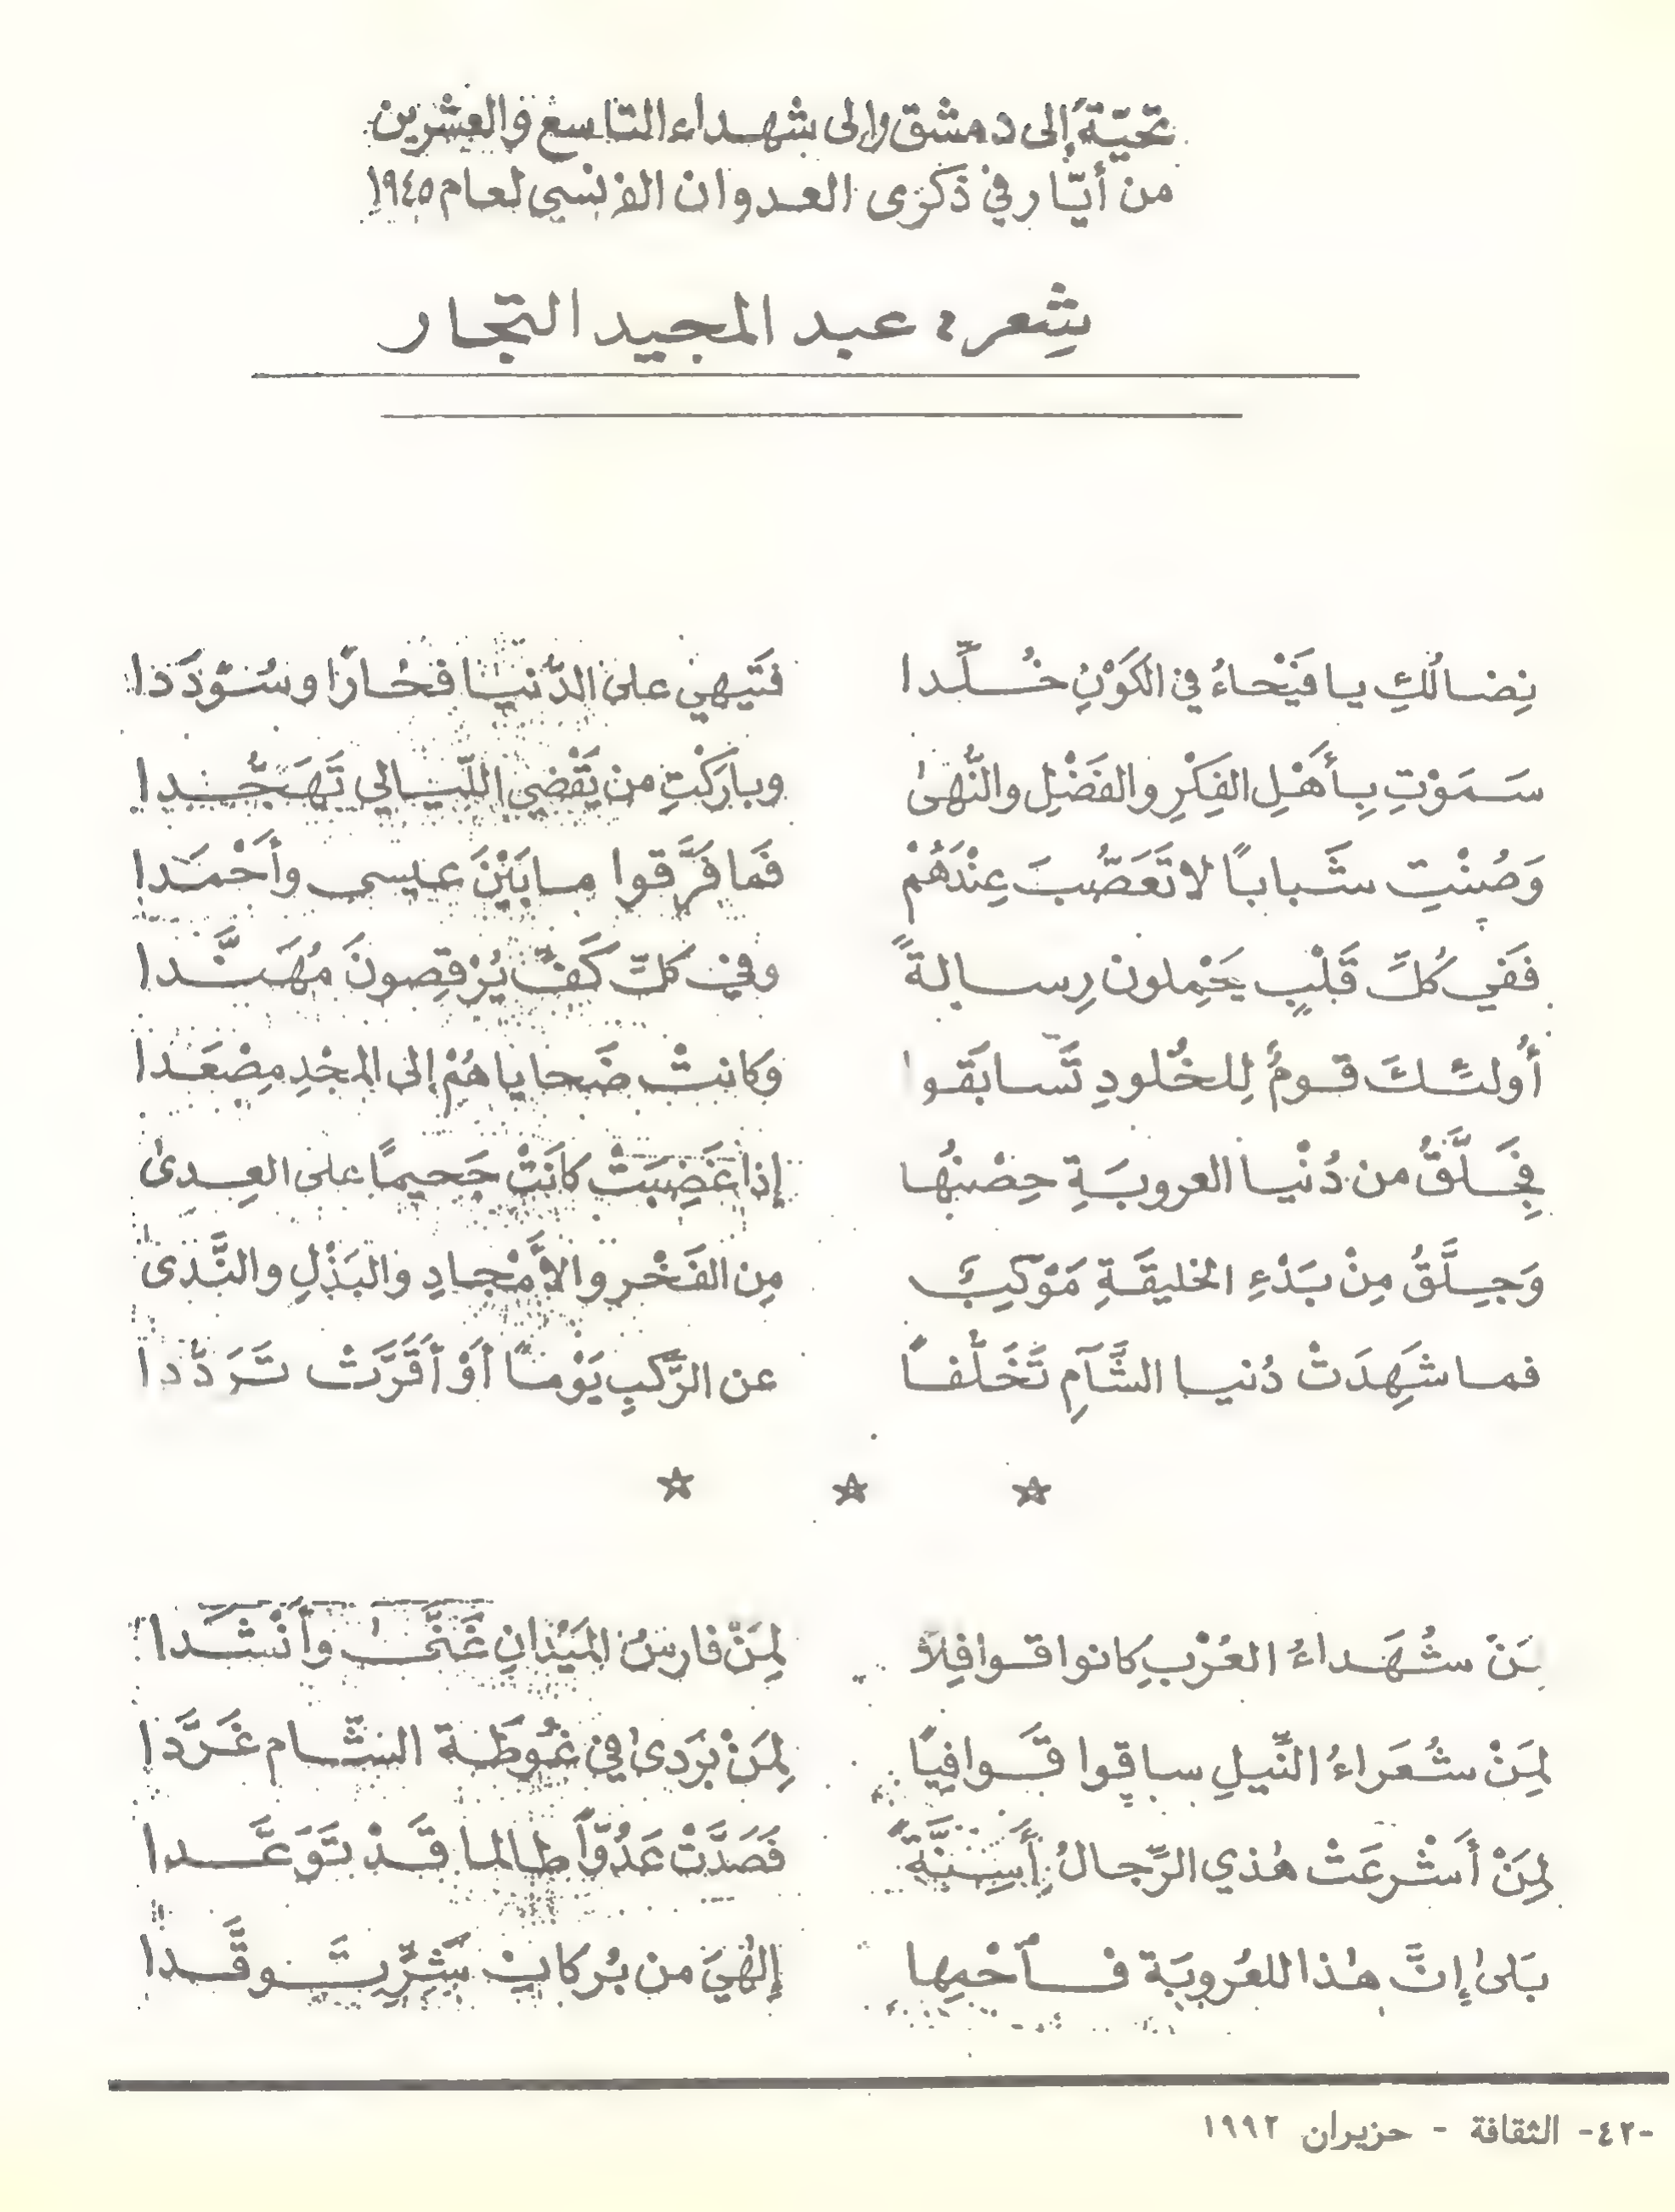 تحيّة إلى دمشق وإلى شهداء التاسع والعشرين
من أيّار في ذكرى العدوان الفرنسي لعام ١٩٤٥
شِعر: عبد المجيد التجار
نِضالُكِ يا فَيْحاءُ في الكَوْنِ خُلِّدا فَتَيهي على الدُّنيا فَخُارًا وسُؤْدَدا
سَمَوْتِ بِأَهْلِ الفِكْرِ والفَضْلِ والنُّهىٰ وبارَكْتِ من يَقْضي اللّيالي تَهَجُّدا
وَصُنْتِ شَبابًا لا تَعَصُّبَ عِنْدَهُمْ فَما فَرَّقوا ما بَيْنَ عيسى وأَحْمَدا
فَفي كُلِّ قَلْبٍ يَحْمِلون رِسالةً وفي كلّ كَفٍّ يُرْقِصونَ مُهَنَّدا
أُولئكَ قومٌ لِلخُلودِ تَسابَقوا وكانتْ ضَحاياهُمْ إلى المجْدِ مِصْعَدا
فَجِلَّقُ من دُنْيا العروبَةِ حِصْنُها إذا غَضِبَتْ كانَتْ جَحيمًا على العِدىٰ
وَجِلَّقُ مِنْ بَدْءِ الخليقَةِ مَوْكِبٌ مِن الفَخْرِ والأَمْجادِ والبَذْلِ والنَّدى
فما شَهِدَتْ دُنيا الشَّآمِ تَخَلُّفاً عن الرَّكبِ يَوْماً أَوْ أَقَرَّتْ تَرَدُّدا
☆ ☆ ☆
لِمَنْ شُهَداءُ العُرْبِ كانوا قوافِلاً لِمَنْ فارسُ المَيْدانِ غَنَّىٰ وأَنْشَدا
لِمَنْ شُعَراءُ النّيلِ ساقوا قَوافيًا لِمَنْ بَرَدىٰ في غُوطَة الشّام غَرَّدا
لِمَنْ أَشْرعَتْ هٰذي الرّجالُ أَسِنَّةً فَصَدَّتْ عَدُوّاً طالما قَدْ تَوَعَّدا
بَلىٰ إنَّ هٰذا للعُروبَة فٱحْمِها إلٰهيَ من بُركانِ شَرٍّ تَوقَّدا
-٤٢- الثقافة - حزيران ١٩٩٢